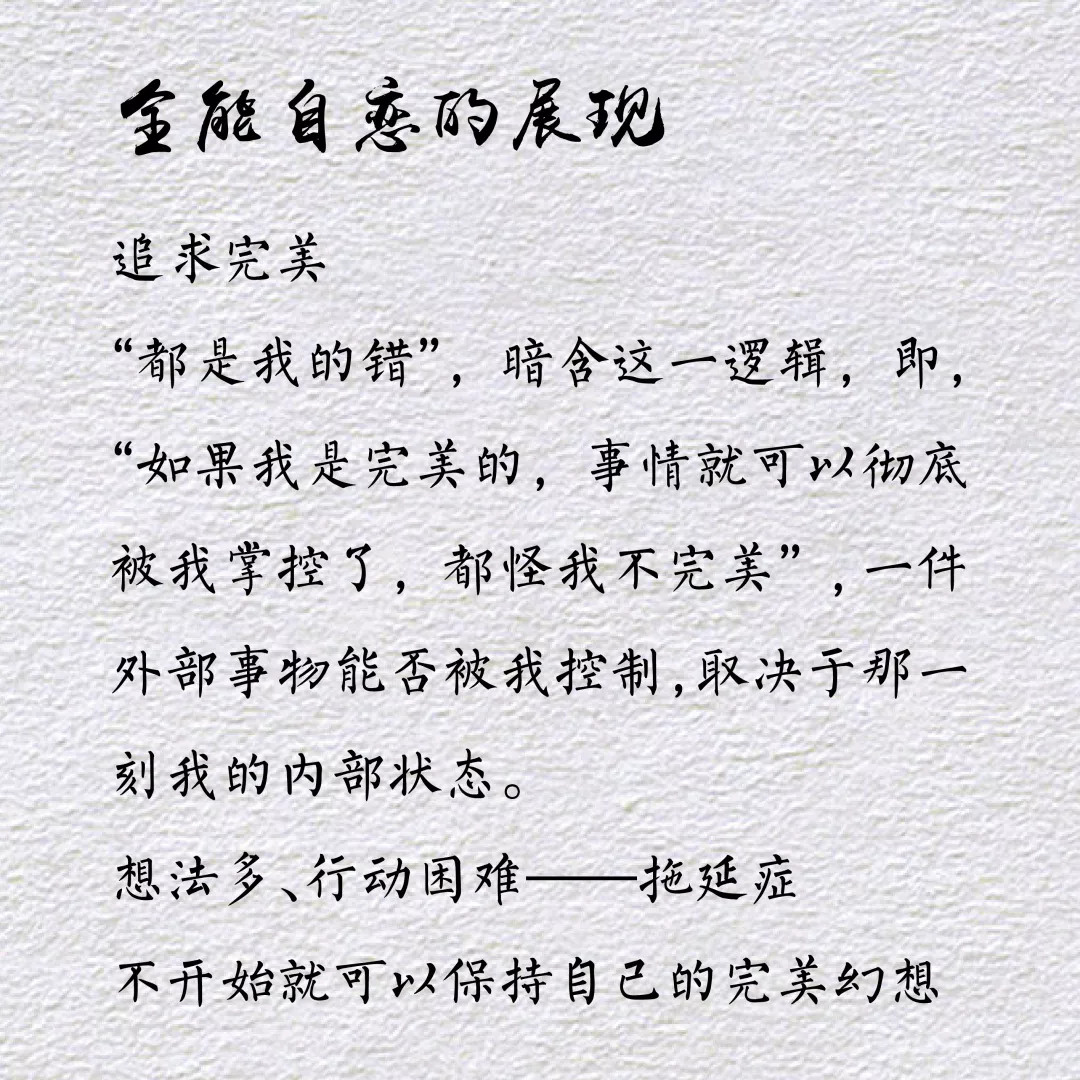 全能自恋的展现
追求完美
“都是我的错”，暗含这一逻辑，即，
“如果我是完美的，事情就可以彻底
被我掌控了，都怪我不完美”，一件
外部事物能否被我控制，取决于那一
刻我的内部状态。
想法多、行动困难——拖延症
不开始就可以保持自己的完美幻想